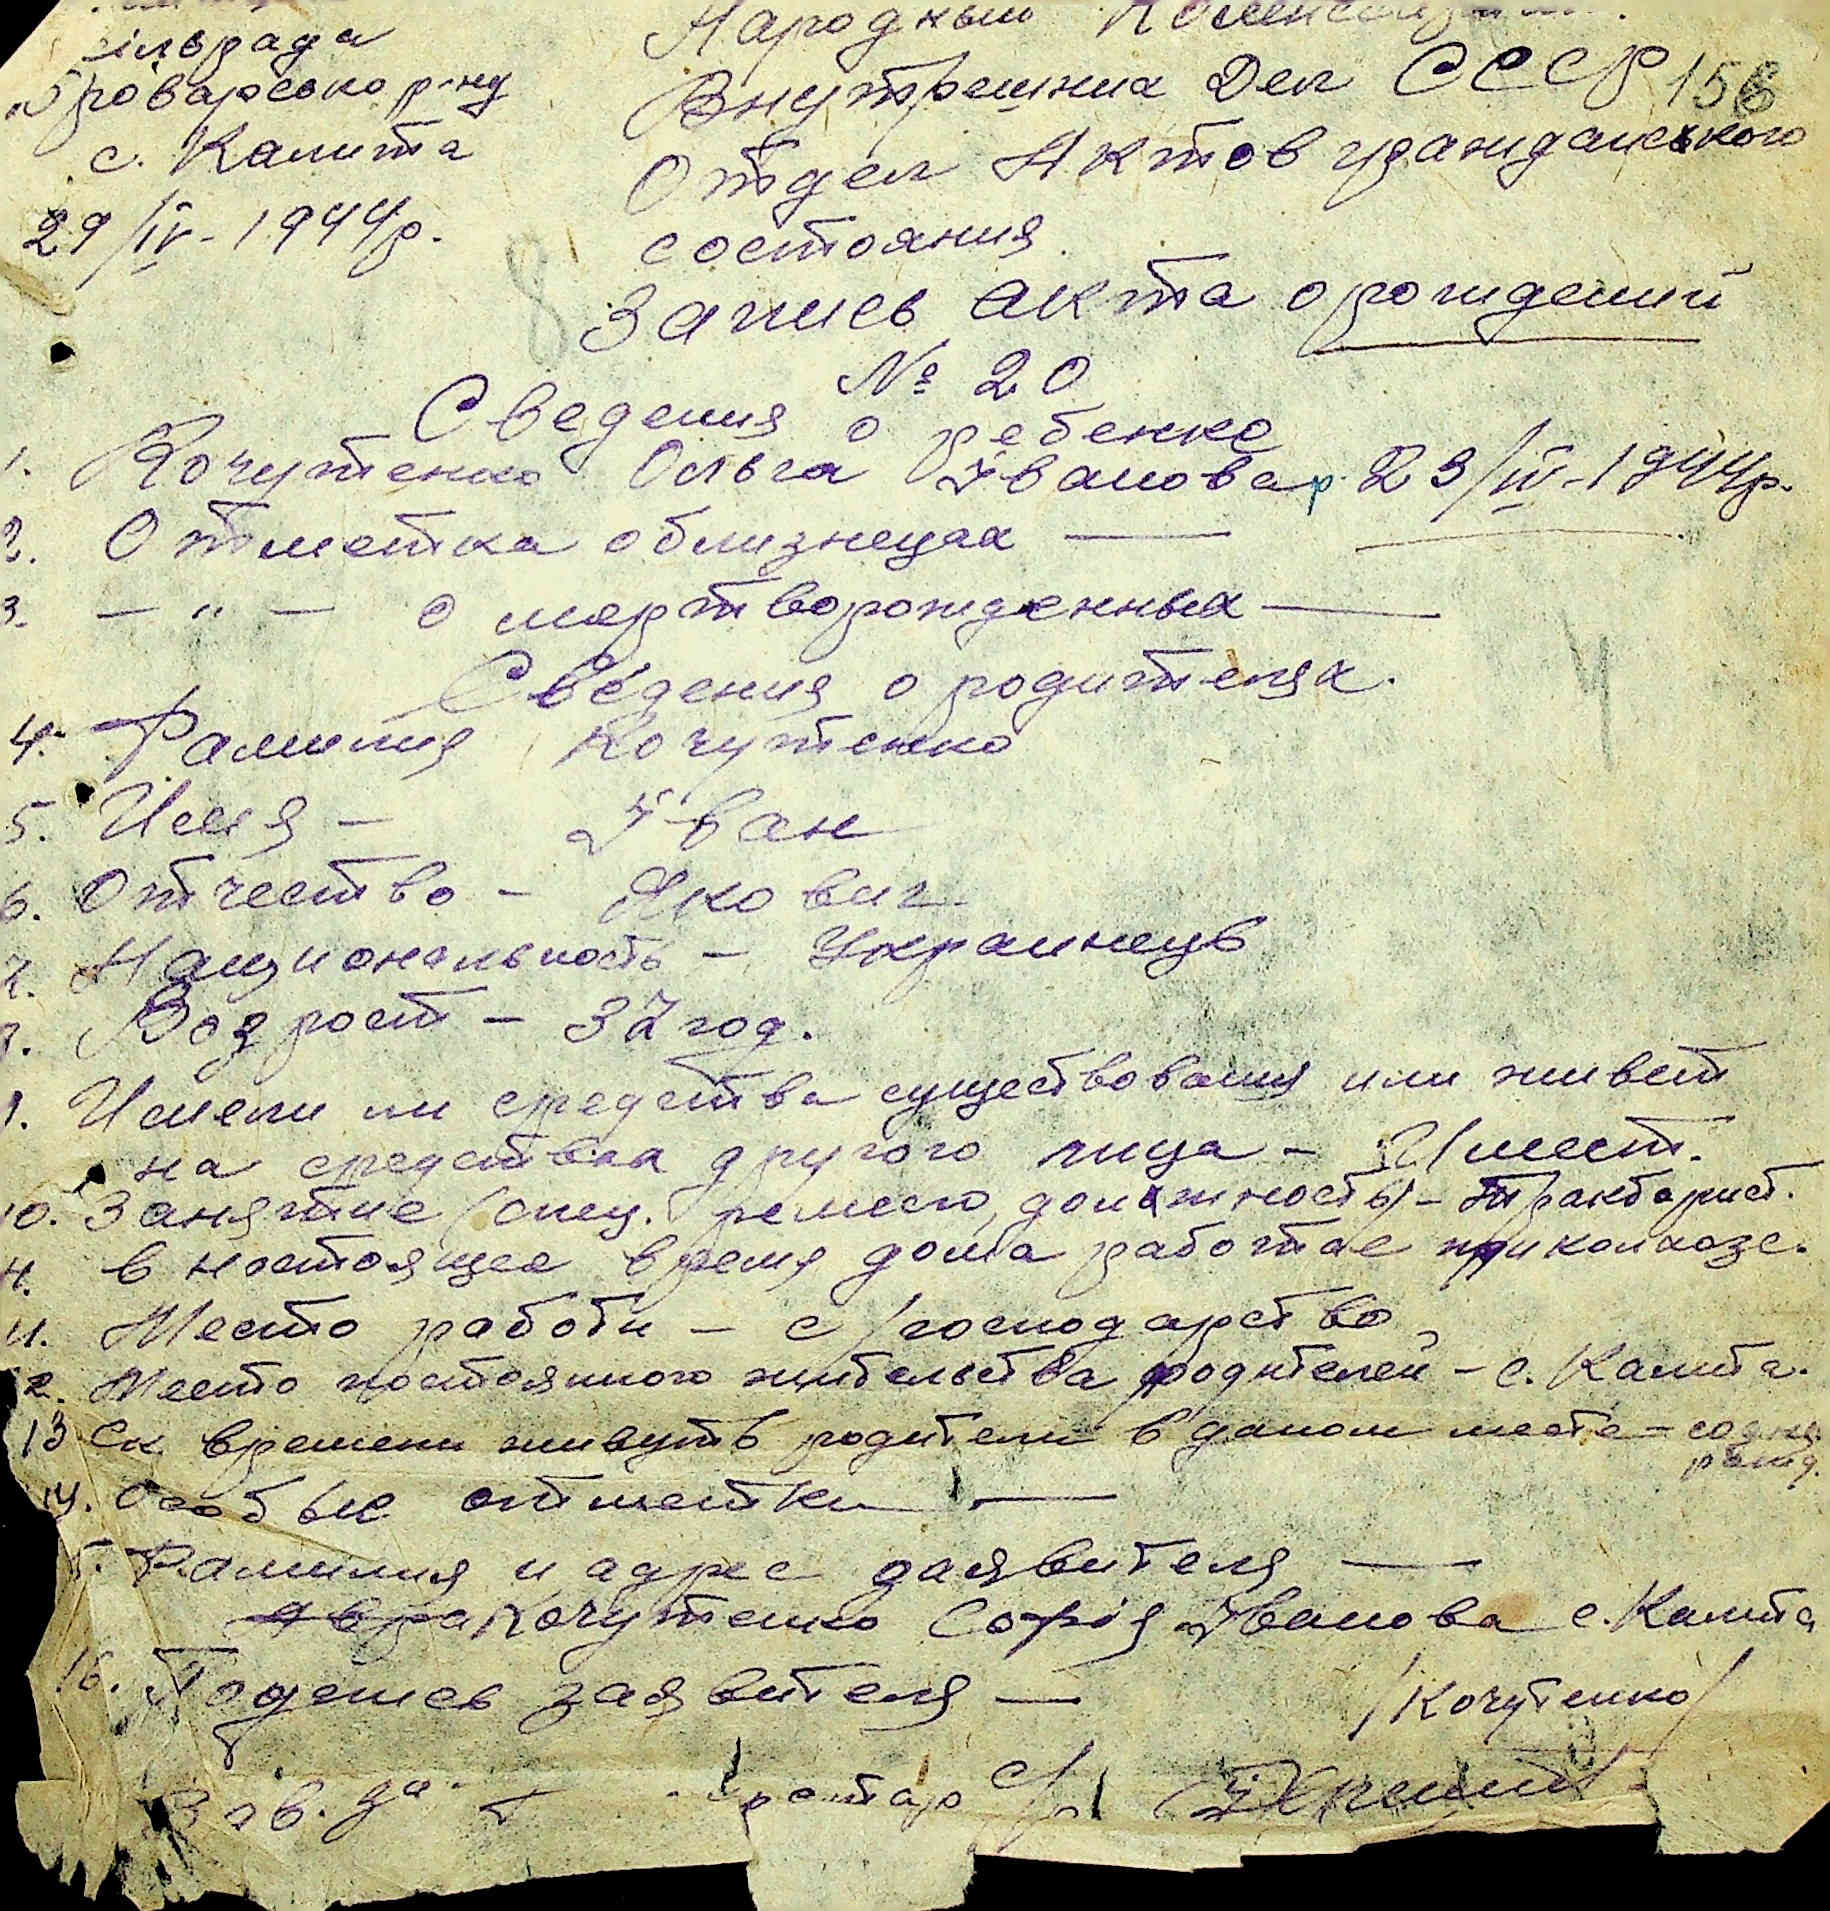 сільрада
Броварсько р-ну
с. Калита
29/IV - 1944р.
Народный
Внутрешних Дел СССР 156
Отдел Актов гражданського
состояния
Запись акта о рождений
№ 20
Сведения о ребенке
1. Кочутенко Ольга Іванова р. 23/IV - 1944р.
2. Отметка о близнецах —
3. — " — о мертворожденных —
Сведения о родителях.
4. Фамилия Кочутенко
5. Имя — Іван
6. Отчество —Якович
7. Национальность — Украинець
Возрост — 37 год.
Имели ли средства существования или живет
на средствах другого лица — Имеет.
10. Занятие (спец. ремесло, должность) — тракторист.
в ностоящее время дома работае при колхозе.
11. Место работи — с/господарство
12. Место постоянного жительства родителей — с. Калита.
13 Ск времени живуть родители в даном месте — со дня
рожд.
14. Особые отметки —
15. Фамилия и адрес заявителя —
Кочутенко Софія Іванова с. Калита
16. Подпись заявителя — /Кочутенко/
Зав. с/р